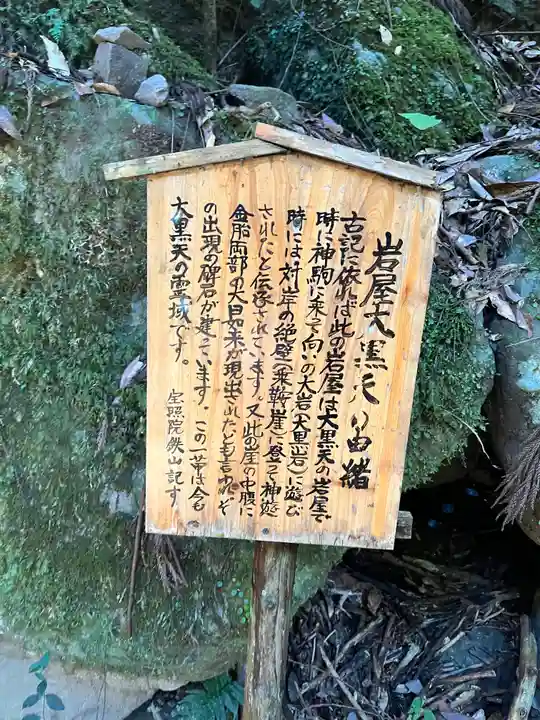 岩屋大黒天の由緒
古記に依れば此の岩屋は大黒天の岩屋で
時に神駒に来って向いの大岩(大黒岩)に遊び
時には対岸の絶壁(乗鞍崖)に登って神遊
されたと伝承されています。又此の崖の中腹に
金胎両部の大日如来が現出されたとも言われ、そ
の出現の碑石が建っています。この一帯は今も
大黒天の霊域です。
宝照院鉄山記す